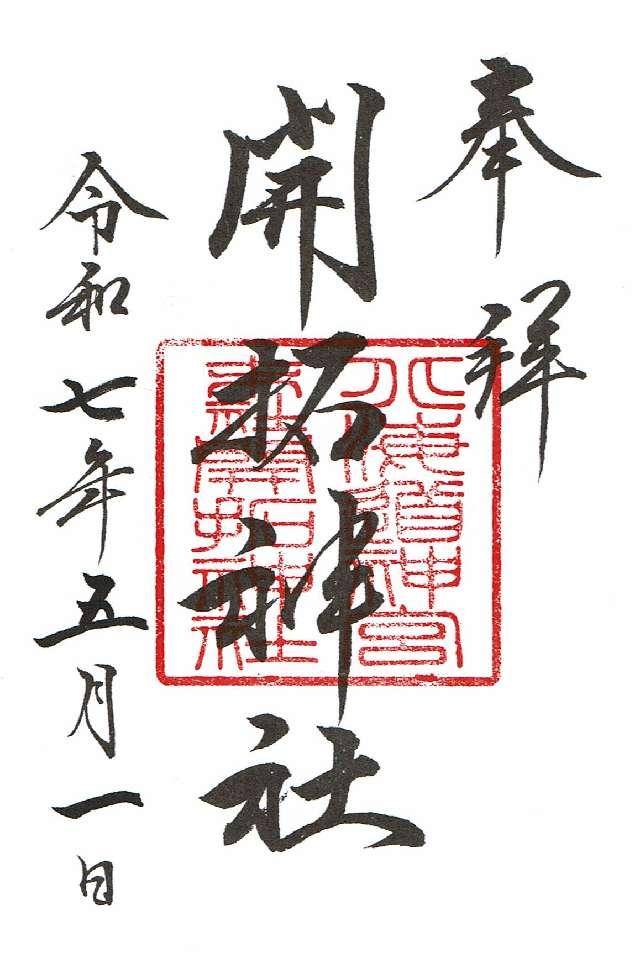 奉拝
開拓神社
北海道神宮
末社開拓神社
令和七年五月一日